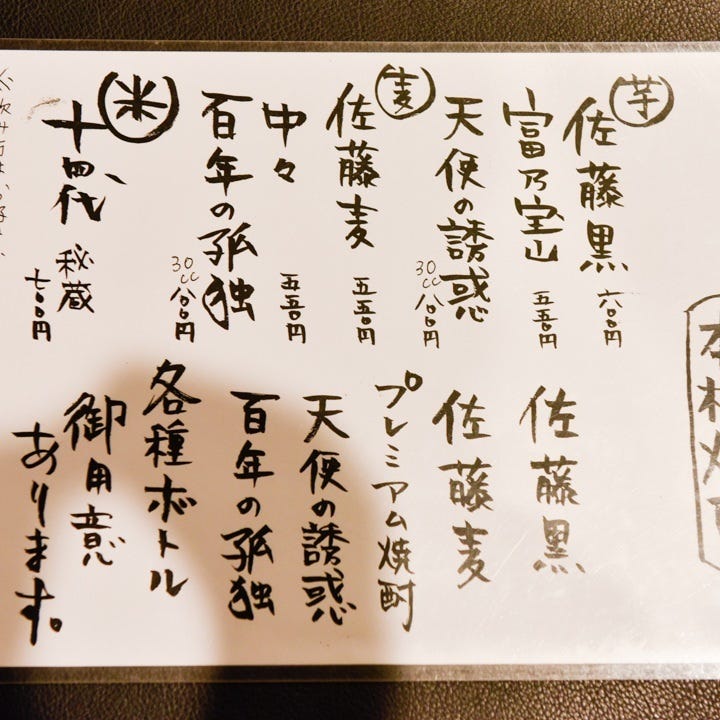 芋
佐藤黒 六〇〇円
富乃宝山 五五〇円
天使の誘惑 30cc 八〇〇円
麦
佐藤麦 五五〇円
中々 五五〇円
百年の孤独 30cc 八〇〇円
米
十四代 秘蔵 七〇〇円
佐藤黒
佐藤麦
プレミアム焼酎
天使の誘惑
百年の孤独
各種ボトル
御用意
あります。